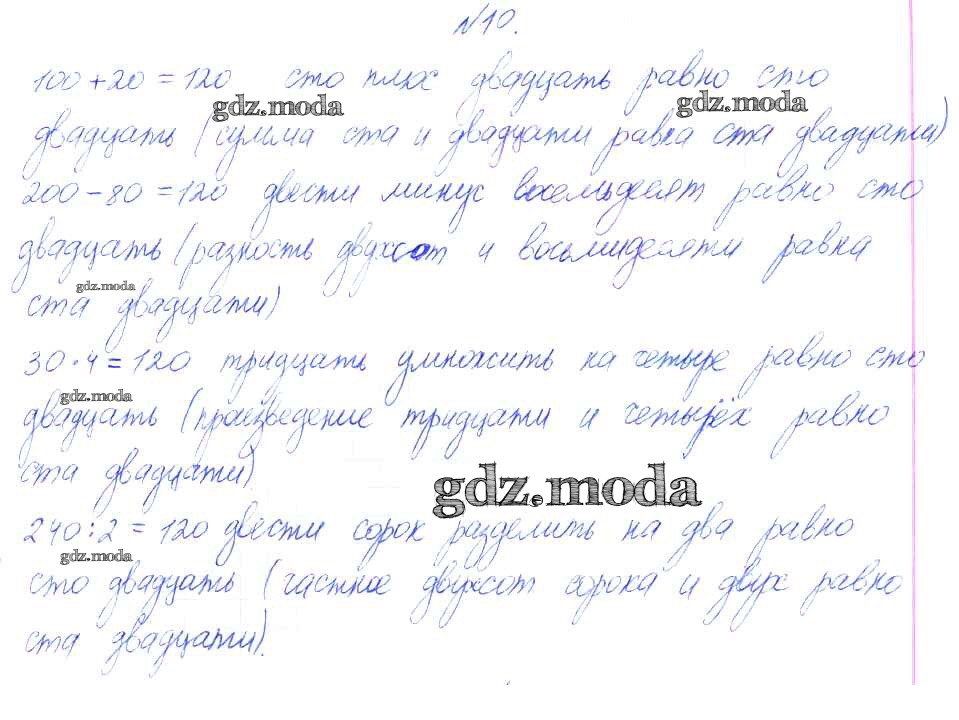 №10.
100+20=120 сто плюс двадцать равно сто
gdz.moda gdz.moda
двадцать (сумма ста и двадцати равна ста двадцати)
200-80=120 двести минус восемьдесят равно сто
двадцать (разность двухсот и восьмидесяти равна
gdz.moda
ста двадцати)
30·4=120 тридцать умножить на четыре равно сто
gdz.moda
двадцать (произведение тридцати и четырёх равно
ста двадцати)
gdz.moda
240:2=120 двести сорок разделить на два равно
gdz.moda
сто двадцать (частное двухсот сорока и двух равно
ста двадцати).